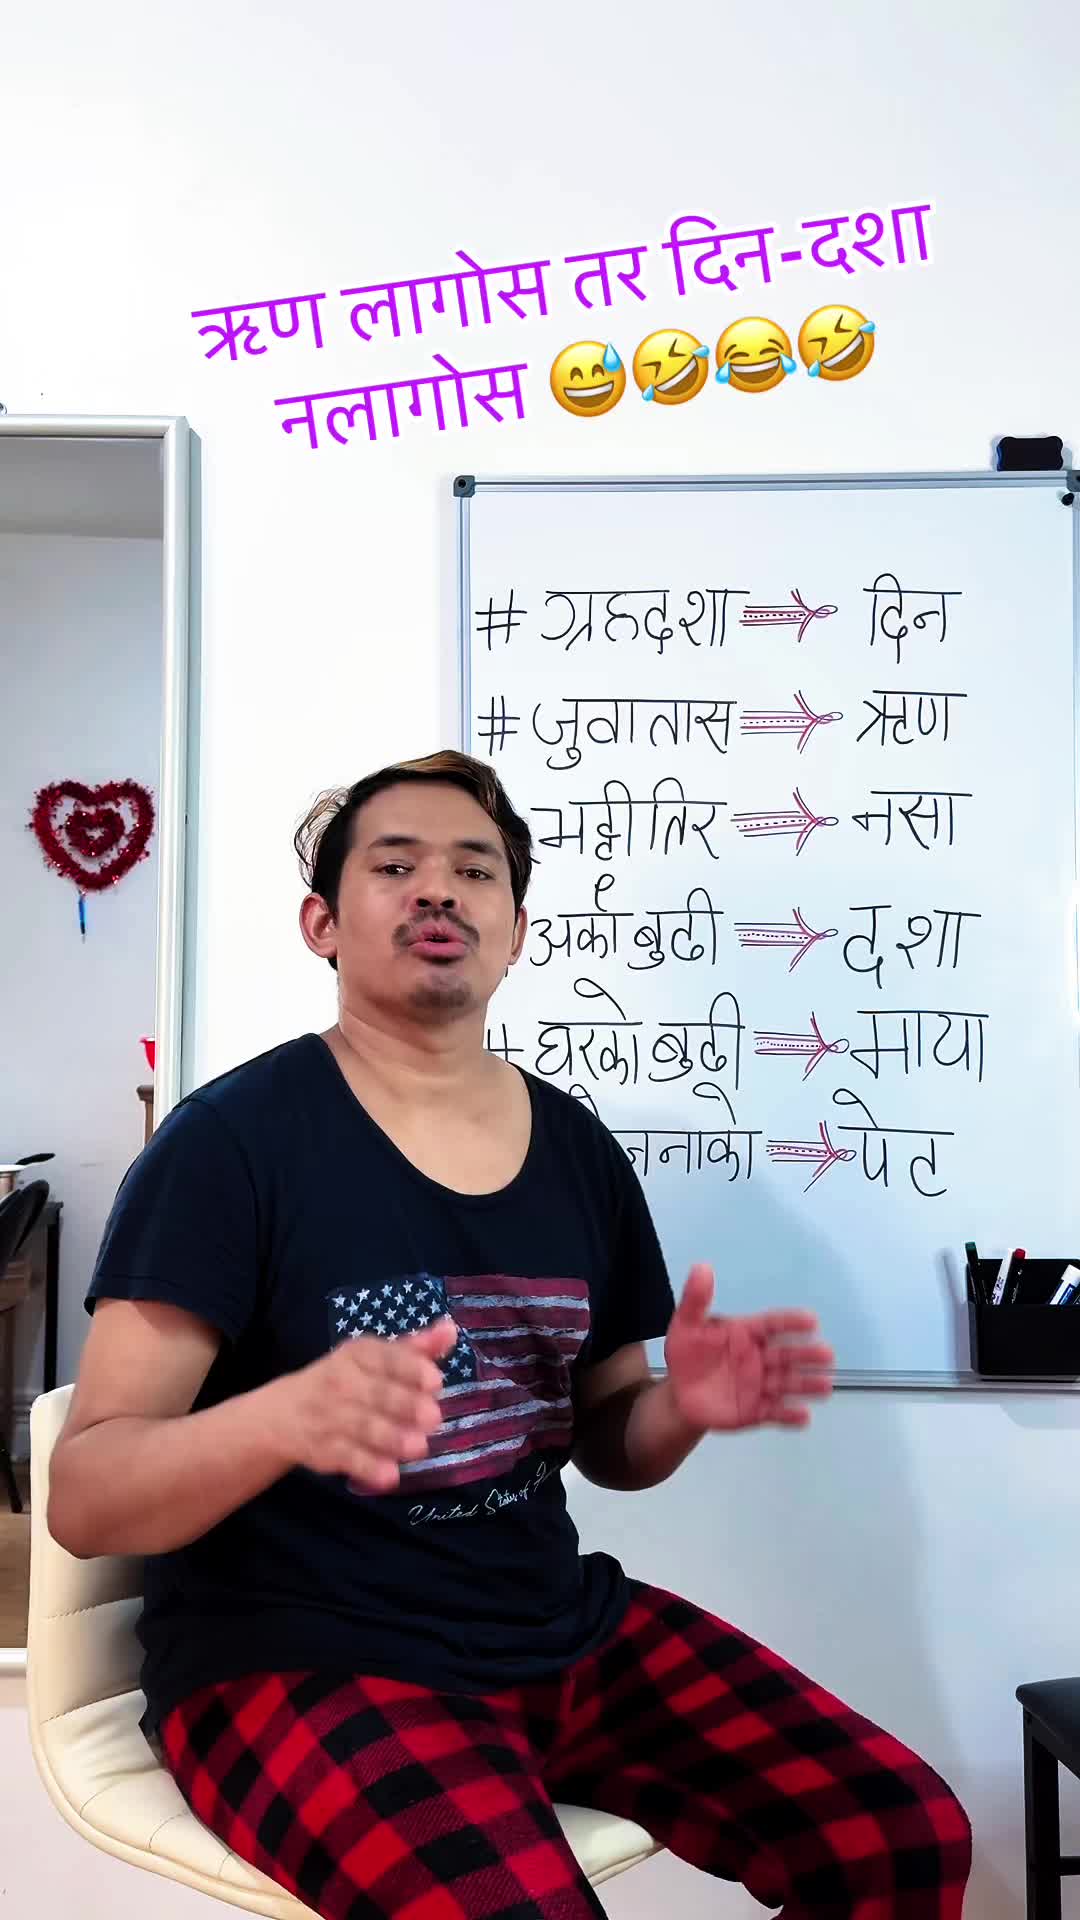 ऋण लागोस तर दिन-दशा
नलागोस 😅🤣😂🤣
# ग्रहदशा ⇒ दिन
# जुवातास ⇒ ऋण
भट्टीतिर ⇒ नसा
अर्को बुढी ⇒ दशा
# घरको बुढी ⇒ माया
⇒ पेट
United States of